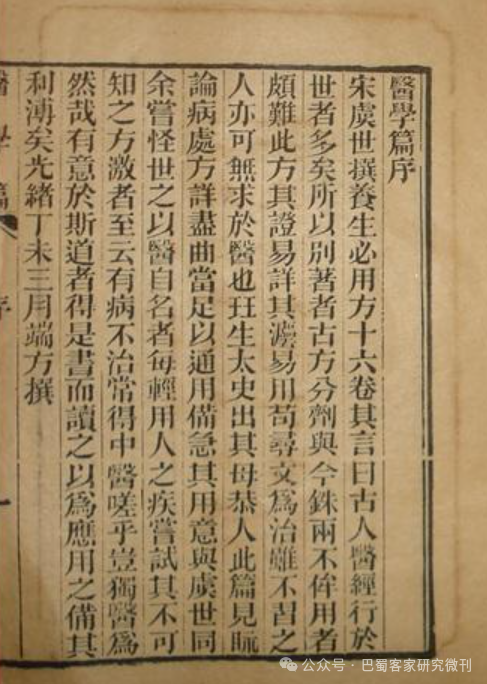 醫學篇序
宋虞世撰養生必用方十六卷其言曰古人醫經行於
世者多矣所以別著者古方分劑與今銖兩不侔用者
頗難此方其證易詳其灋易用苟尋文爲治雖不習之
人亦可無求於醫也玨生太史出其母恭人此篇見眎
論病處方詳盡曲當足以通用備急其用意與虞世同
余嘗怪世之以醫自名者每輕用人之疾嘗試其不可
知之方激者至云有病不治常得中醫嗟乎豈獨醫爲
然哉有意於斯道者得是書而讀之以爲應用之備其
利溥矣光緒丁未三月端方撰
醫學篇 序 一
公众号·巴蜀客家研究微刊